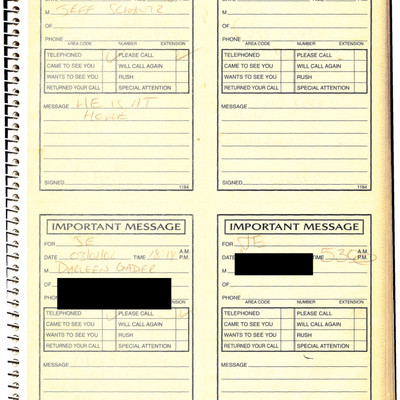 M GEFF SCHANTZ
OF
PHONE
AREA CODE NUMBER EXTENSION
TELEPHONED PLEASE CALL
CAME TO SEE YOU WILL CALL AGAIN
WANTS TO SEE YOU RUSH
RETURNED YOUR CALL SPECIAL ATTENTION
MESSAGE HE IS AT
HOME
SIGNED
1184
M
OF
PHONE
AREA CODE NUMBER EXTENSION
TELEPHONED PLEASE CALL
CAME TO SEE YOU WILL CALL AGAIN
WANTS TO SEE YOU RUSH
RETURNED YOUR CALL SPECIAL ATTENTION
MESSAGE
SIGNED
1184
IMPORTANT MESSAGE
FOR JE
A.M.
DATE TIME P.M.
M DARLEEN
OF
PHONE
TELEPHONED PLEASE CALL
CAME TO SEE YOU WILL CALL AGAIN
WANTS TO SEE YOU RUSH
RETURNED YOUR CALL SPECIAL ATTENTION
MESSAGE
IMPORTANT MESSAGE
FOR JE
A.M.
DATE TIME P.M.
M
OF
PHONE
AREA CODE NUMBER EXTENSION
TELEPHONED PLEASE CALL
CAME TO SEE YOU WILL CALL AGAIN
WANTS TO SEE YOU RUSH
RETURNED YOUR CALL SPECIAL ATTENTION
MESSAGE